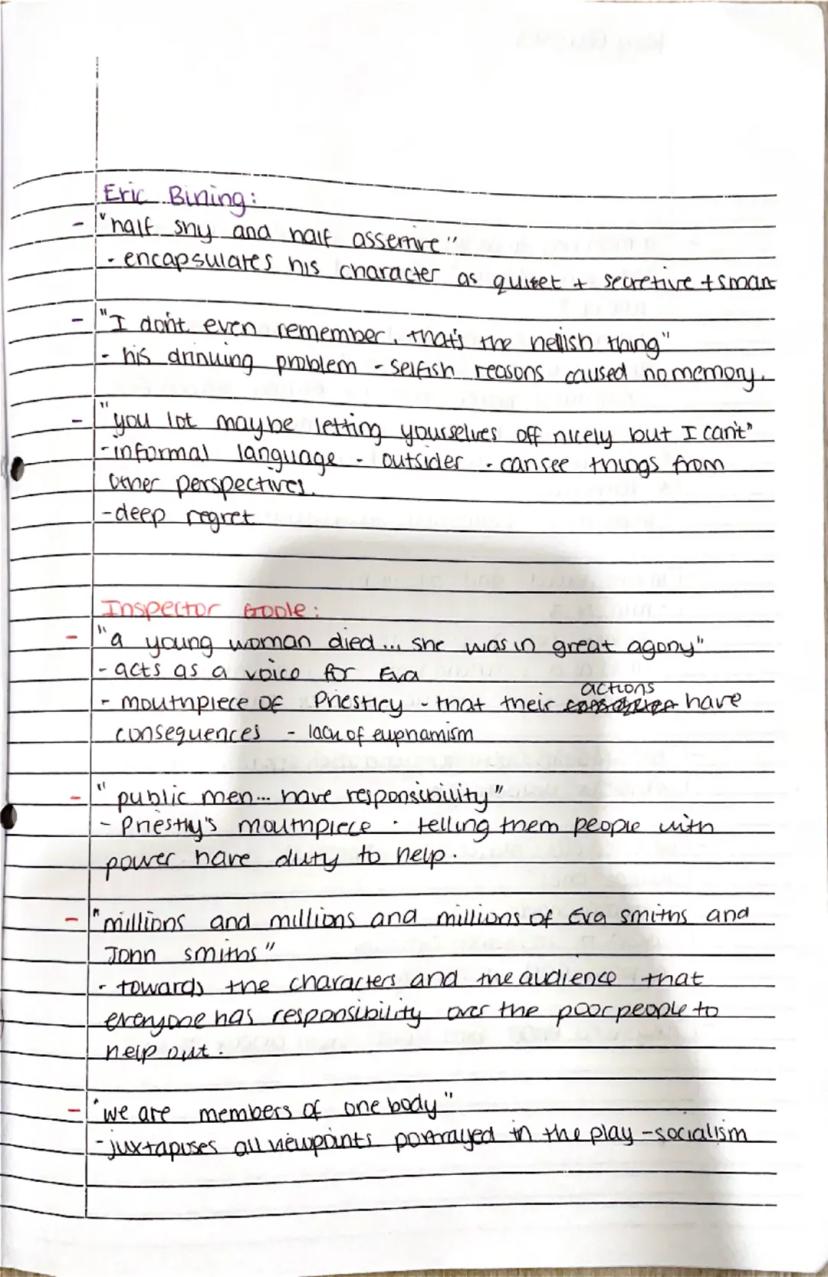 Eric Bining:
- "half shy and half assertive"
- encapsulates his character as quitet + secretive + smart
- "I don't even remember, that's the hellish thing"
- his drinking problem - selfish reasons caused no memory.
- "you lot maybe letting yourselves off nicely but I can't"
- informal language - outsider - can see things from
other perspectives.
- deep regret
Inspector Goole:
- "a young woman died... she was in great agony"
- acts as a voice for Eva
- mouthpiece of Priestley - that their actions have
consequences - lack of euphamism
- "public men... have responsibility"
- Priestly's mouthpiece - telling them people with
power have duty to help.
- "millions and millions and millions of Eva smiths and
John smiths"
- towards the characters and the audience that
everyone has responsibility over the poor people to
help out.
- "we are members of one body"
- juxtaposes all viewpoints portrayed in the play - socialism